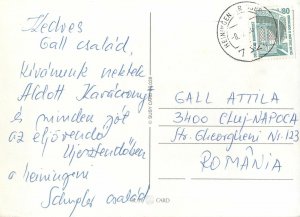 Kedves
Gall család,
Kívánunk nektek
Áldott Karácsonyt
és minden jót
az eljövendő
Újesztendőben
a meiningeni
Schupler család
GALL ATTILA
3400 CLUJ-NAPOCA
Str. Gheorgheni Nr. 123
ROMÂNIA
80
CARD